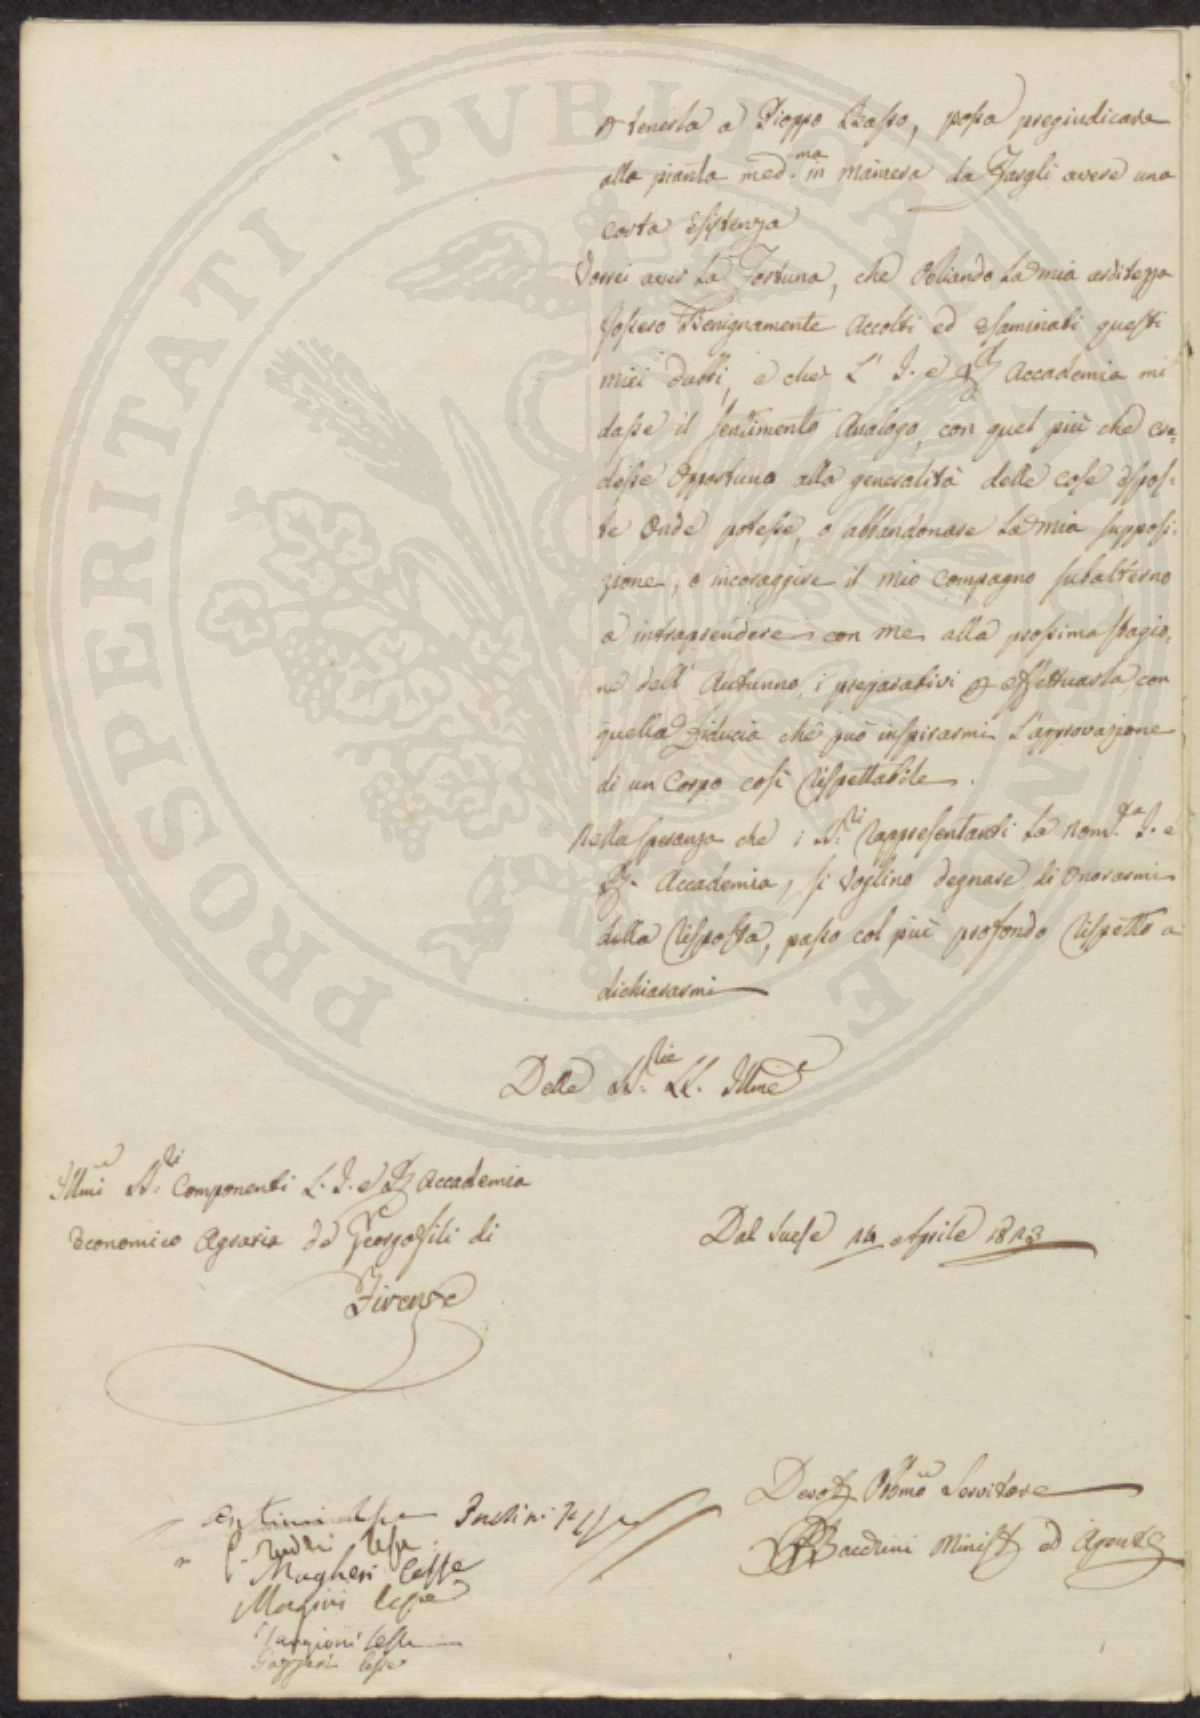 PROSPERITATI PVBLICAE AVGENDAE
p tenerla a Pioppo Basso, possa pregiudicare
alla pianta med.ma in maniera da Fargli avere una
corta Esistenza
Vorrei aver La Fortuna, che Obliando La mia arditezza
fossero Benignamente Accolti ed esaminati questi
miei dubbi, e che L' I. e R Accademia mi
dasse il sentimento Analogo, con quel più che cre=
desse Opportuno alla generalità delle cose espos=
te Onde potesse, o abbandonare La mia supposi=
zione, o incoraggire il mio Compagno subalterno
a intraprendere con me alla prossima stagio=
ne dell' Autunno, i preparativi p effettuarla con
quella Fiducia che può inspirarmi L'approvazione
di un Corpo così Rispettabile.
Nella speranza che i SS.ri Rappresentanti La Nom.ta I. e
R. Accademia, si Voglino degnare di Onorarmi
della Risposta, passo col più profondo Rispetto a
dichiararmi
Delle SS.rie LL. Illme
Illmi SS.ri Componenti L. I. e R Accademia
Economico Agraria de Georgofili di
Firenze
Dal 14 Aprile 1823
Devot Obbmo Servitore
Bacchini Minist ed Agente
lesse
lesse
Magheri lesse
lesse
lesse
Gazzeri lesse